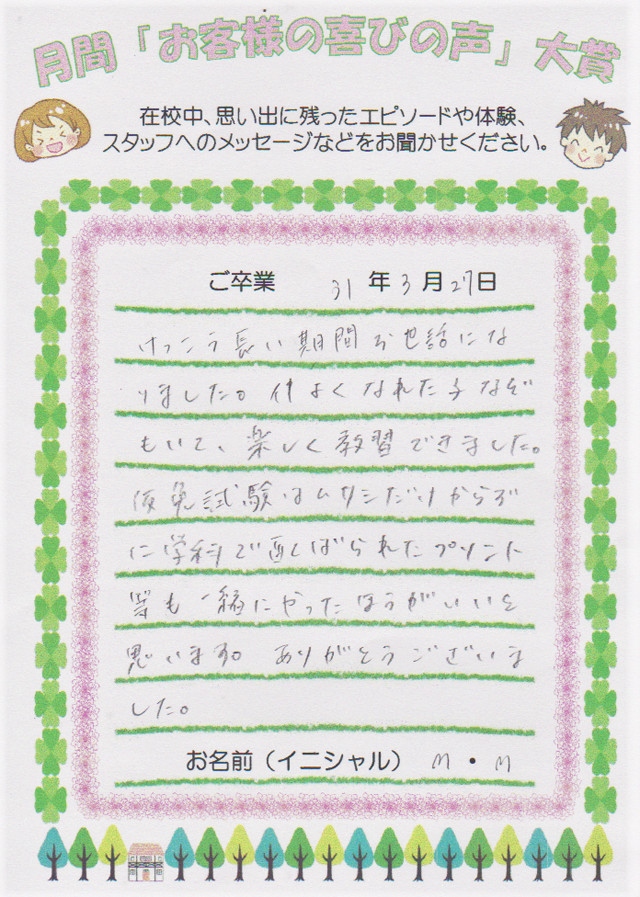 月間「お客様の喜びの声」大賞
在校中、思い出に残ったエピソードや体験、
スタッフへのメッセージなどをお聞かせください。
ご卒業 31 年 3 月 27日
けっこう長い期間お世話にな
りました。仲よくなれた子など
もいて、楽しく教習できました。
仮免試験はムサシだけからず
に学科で配られたプリント
等も一緒にやったほうがいいと
思います。ありがとうございま
した。
お名前（イニシャル） M・M